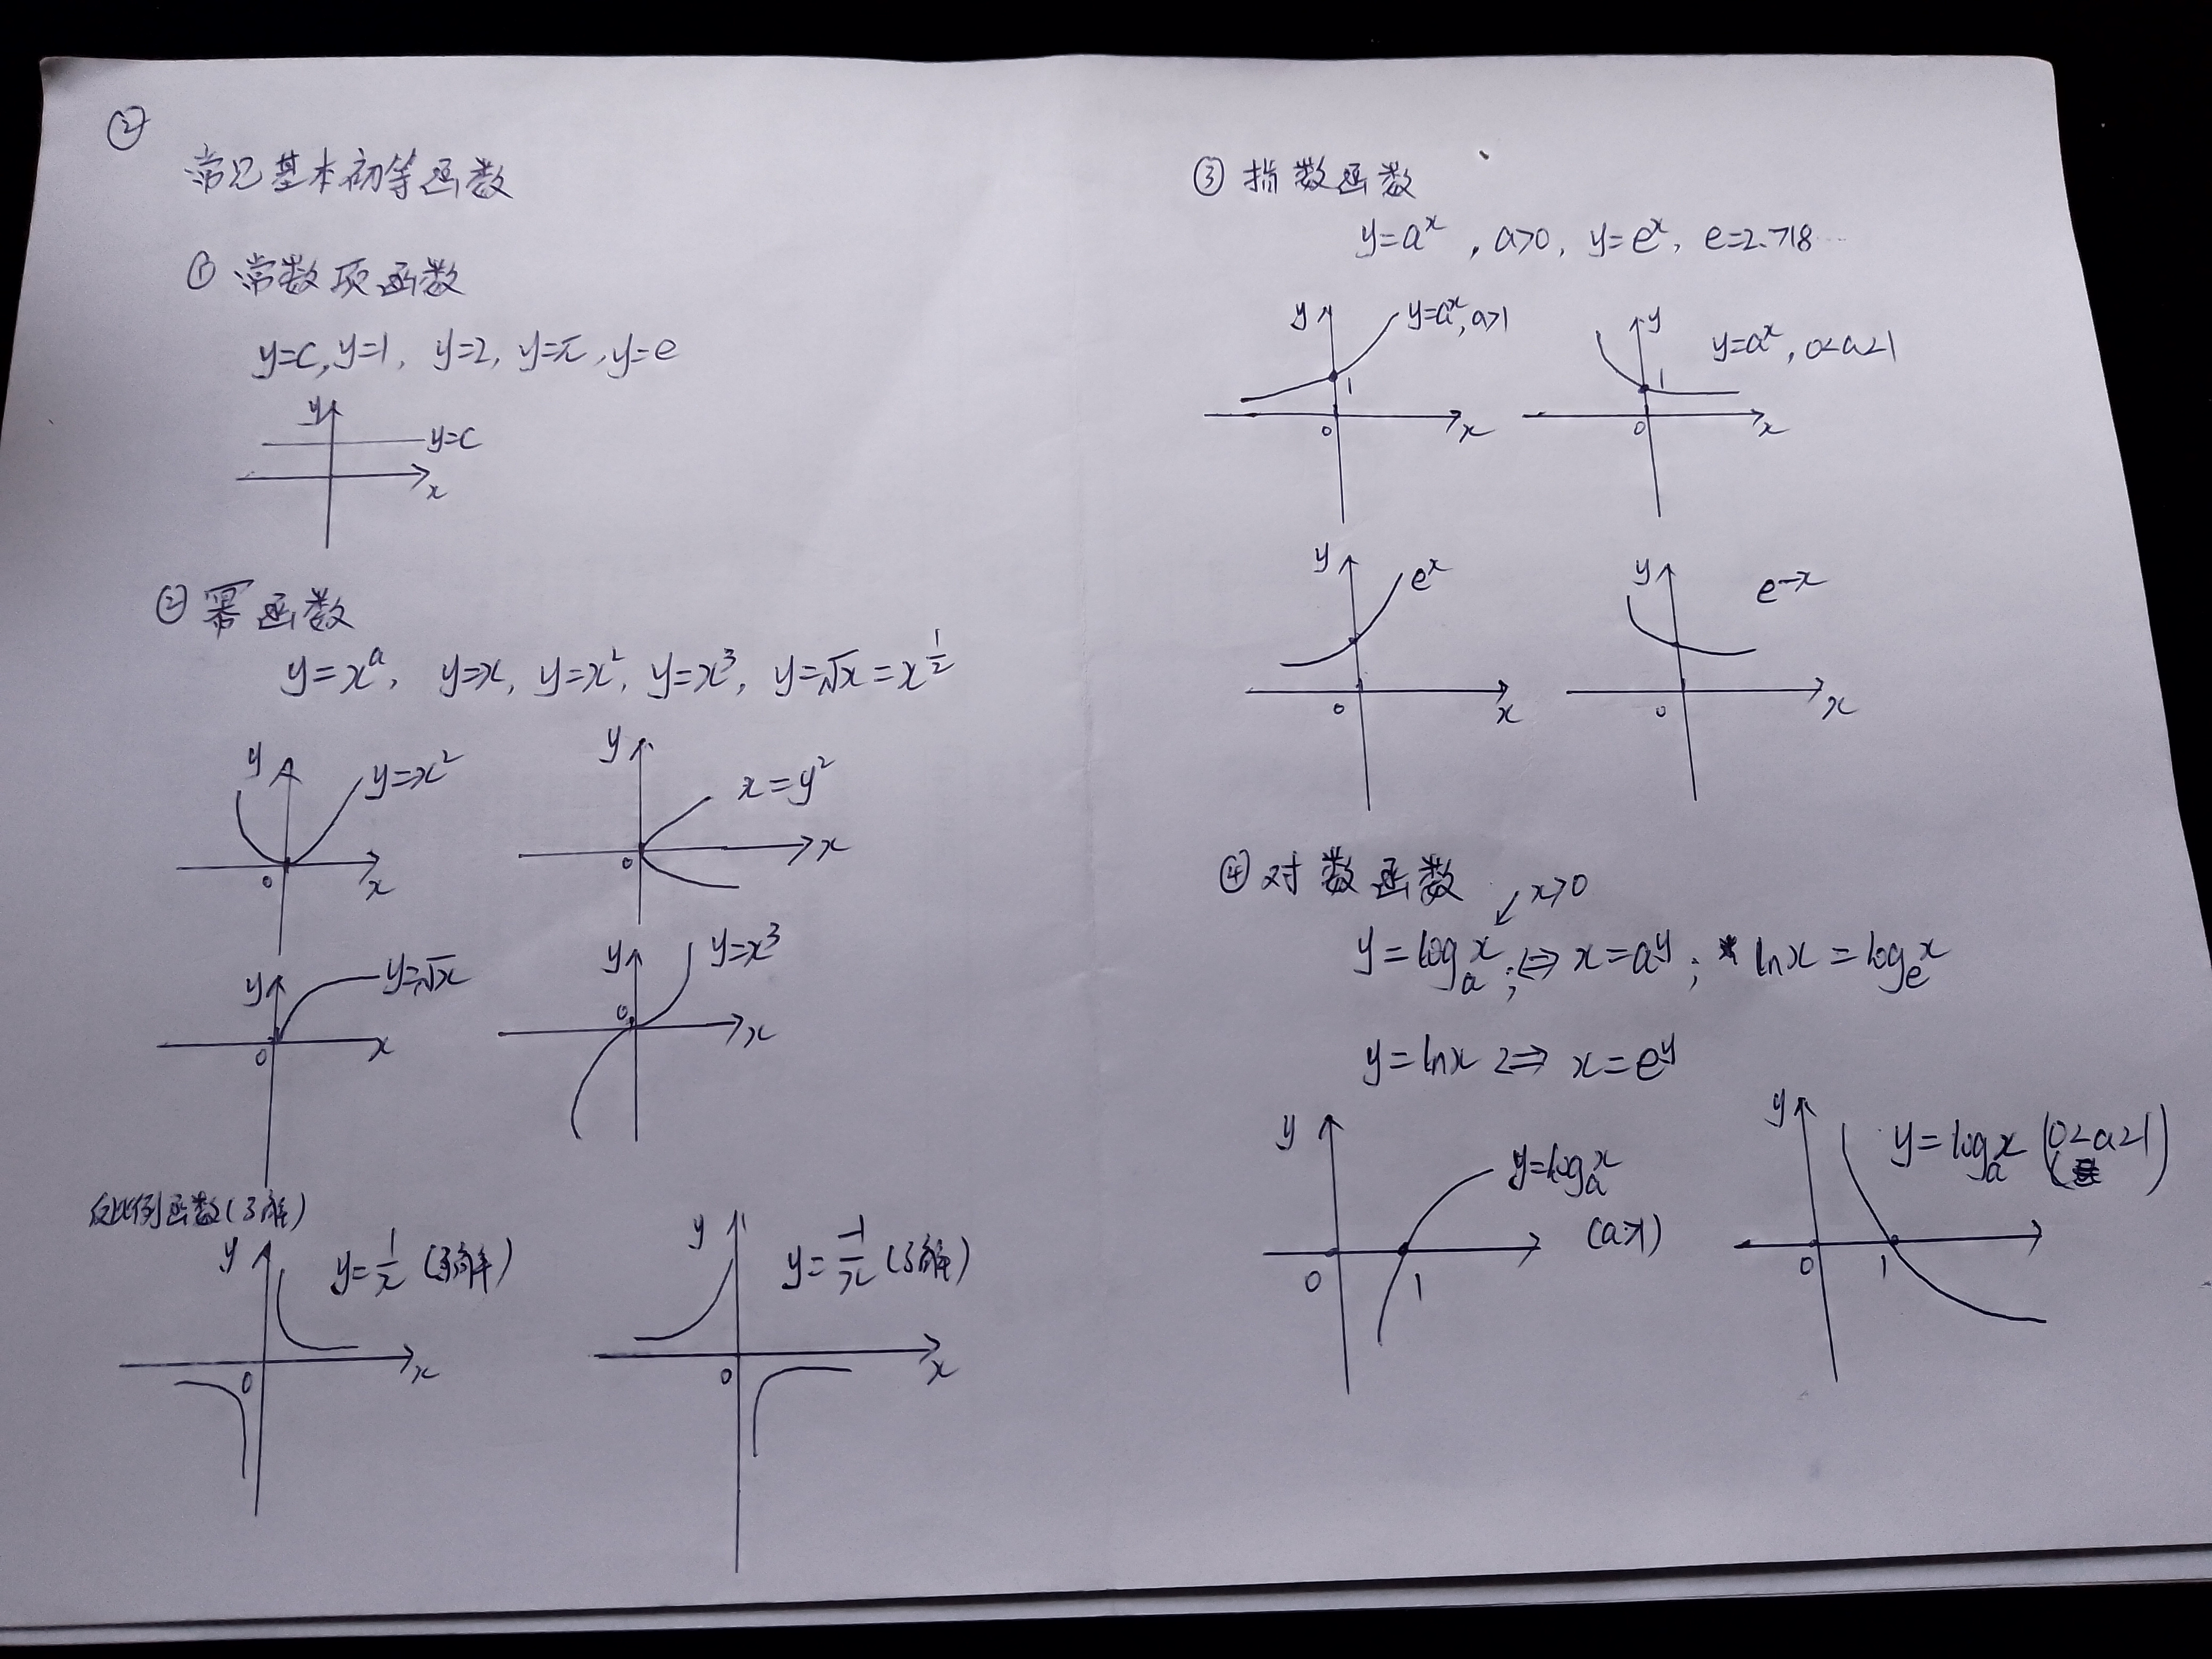 ②
常见基本初等函数
① 常数项函数
y=c, y=1, y=2, y=π, y=e
y
y=c
x
② 幂函数
y=xᵃ, y=x, y=x², y=x³, y=√x=x^{1/2}
y
y=x²
0
x
y
x=y²
0
x
y
y=√x
0
x
y
y=x³
0
x
反比例函数(了解)
y
y=1/x (了解)
0
x
y
y=-1/x (了解)
0
x
③ 指数函数
y=aˣ, a>0, y=eˣ, e=2.718…
y
y=aˣ, a>1
1
0
x
y
y=aˣ, 0<a<1
1
0
x
y
eˣ
0
x
y
e⁻ˣ
0
x
④ 对数函数
↙ x>0
y=logₐx; ⇔ x=aʸ; * lnx=logₑx
y=lnx ⇔ x=eʸ
y
y=logₐx
(a>1)
0
1
y
y=logₐx (0<a<1)
0
1